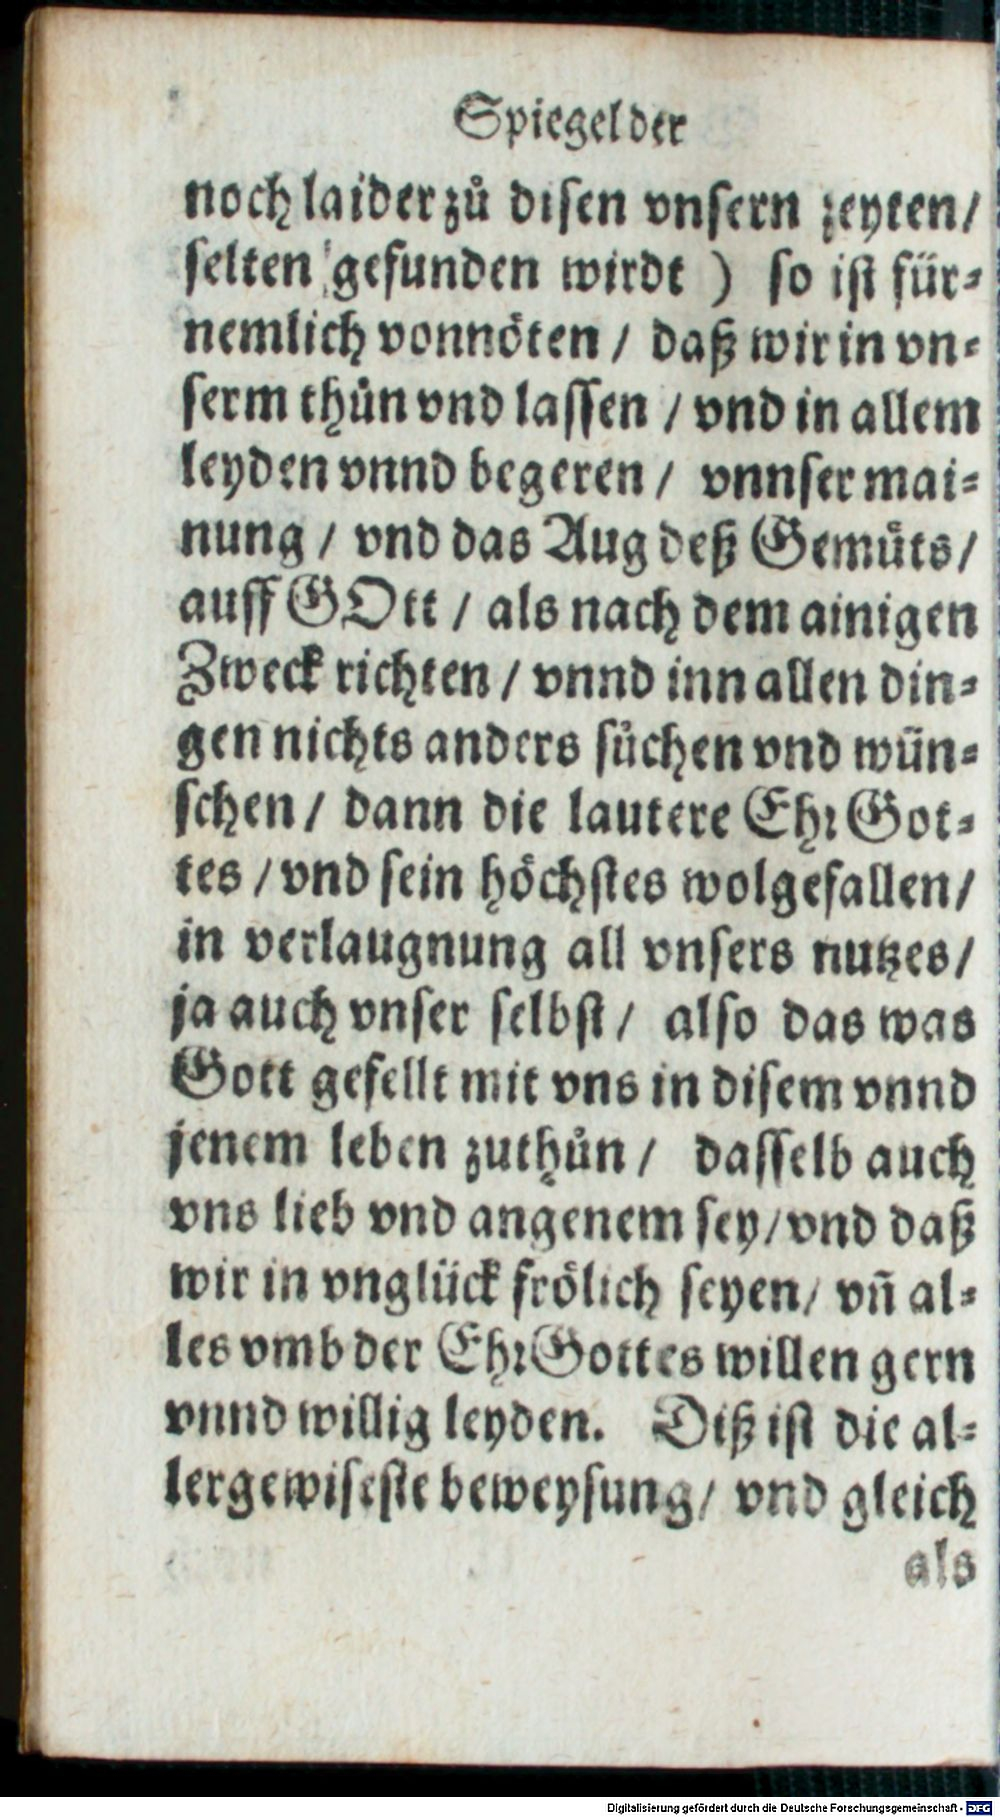 Spiegel der
noch laider zů disen vnsern zeyten/
selten gefunden wirdt ) so ist für-
nemlich vonnöten / daß wir in vn-
serm thůn vnd lassen / vnd in allem
leyden vnnd begeren / vnnser mai-
nung / vnd das Aug deß Gemůts/
auff GOtt / als nach dem ainigen
Zweck richten / vnnd inn allen din-
gen nichts anders sůchen vnd wün-
schen / dann die lautere Ehr Got-
tes / vnd sein höchstes wolgefallen/
in verlaugnung all vnsers nutzes/
ja auch vnser selbst / also das was
Gott gefellt mit vns in disem vnnd
jenem leben zuthůn / dasselb auch
vns lieb vnd angenem sey/ vnd daß
wir in vnglück frölich seyen/ vñ al-
les vmb der Ehr Gottes willen gern
vnnd willig leyden. Diß ist die al-
lergewiseste beweysung/ vnd gleich
als
Digitalisierung gefördert durch die Deutsche Forschungsgemeinschaft - DFG